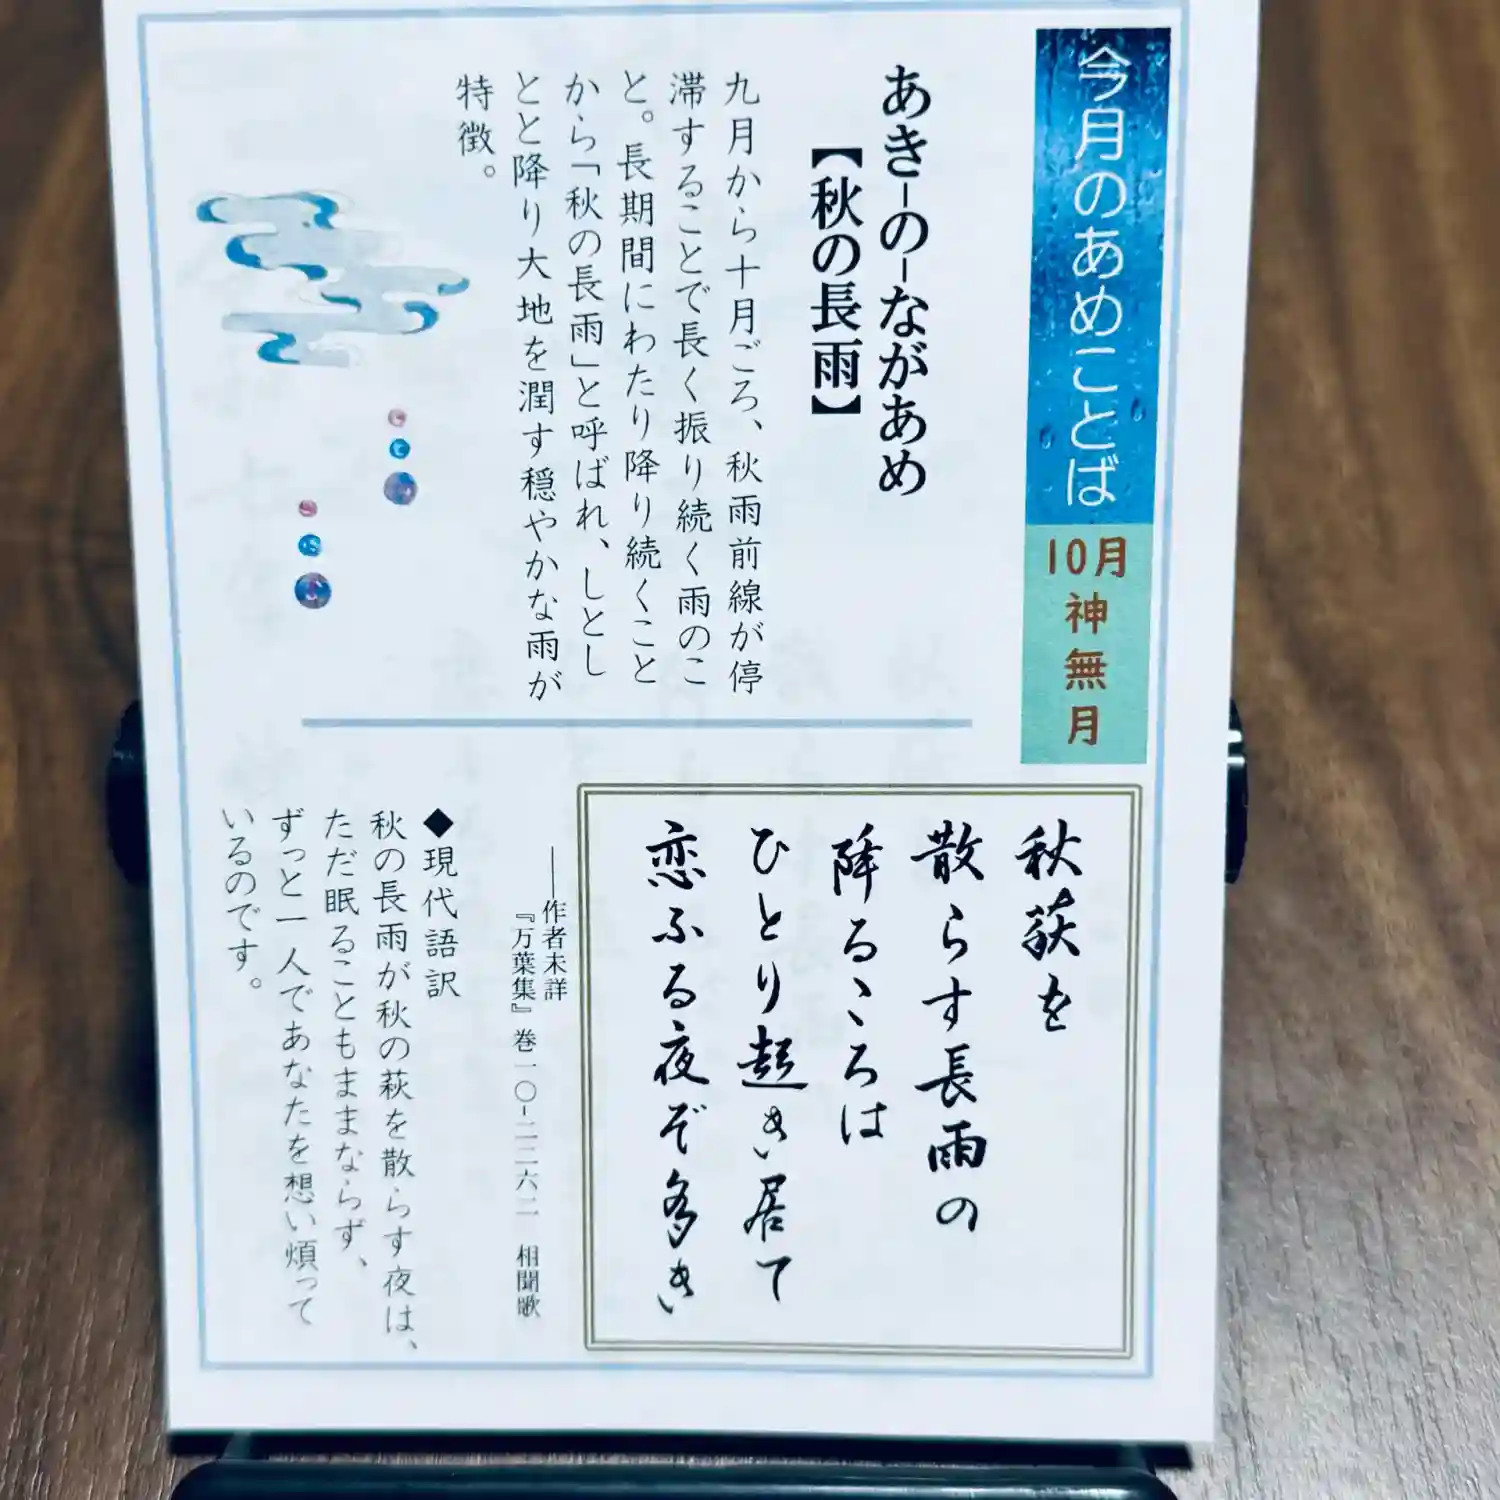 今月のあめことば
10月
神無月
あき-の-ながあめ
【秋の長雨】
九月から十月ごろ、秋雨前線が停
滞することで長く振り続く雨のこ
と。長期間にわたり降り続くこと
から「秋の長雨」と呼ばれ、しとし
とと降り大地を潤す穏やかな雨が
特徴。
秋萩を
散らす長雨の
降るゝろは
ひとり起き居て
恋ふる夜ぞ多き
――作者未詳
『万葉集』巻一〇-二二六二 相聞歌
◆現代語訳
秋の長雨が秋の萩を散らす夜は、
ただ眠ることもままならず、
ずっと一人であなたを想い煩って
いるのです。